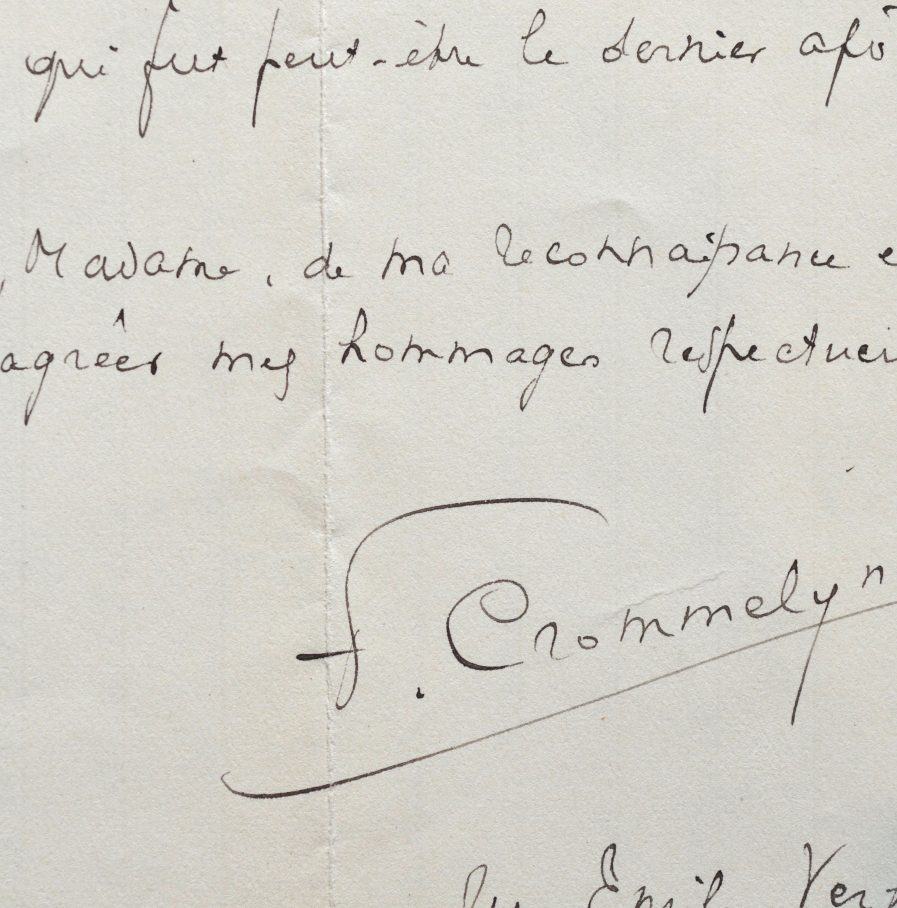 qui fut peut-être le dernier apô
, Madame, de ma reconnaissance e
agréer mes hommages respectueu
F. Crommelyn
Emil Ver